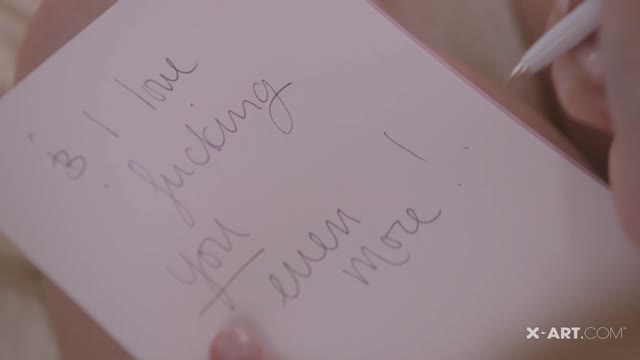 & I love
fucking
you
even
more!
X-ART.COM™